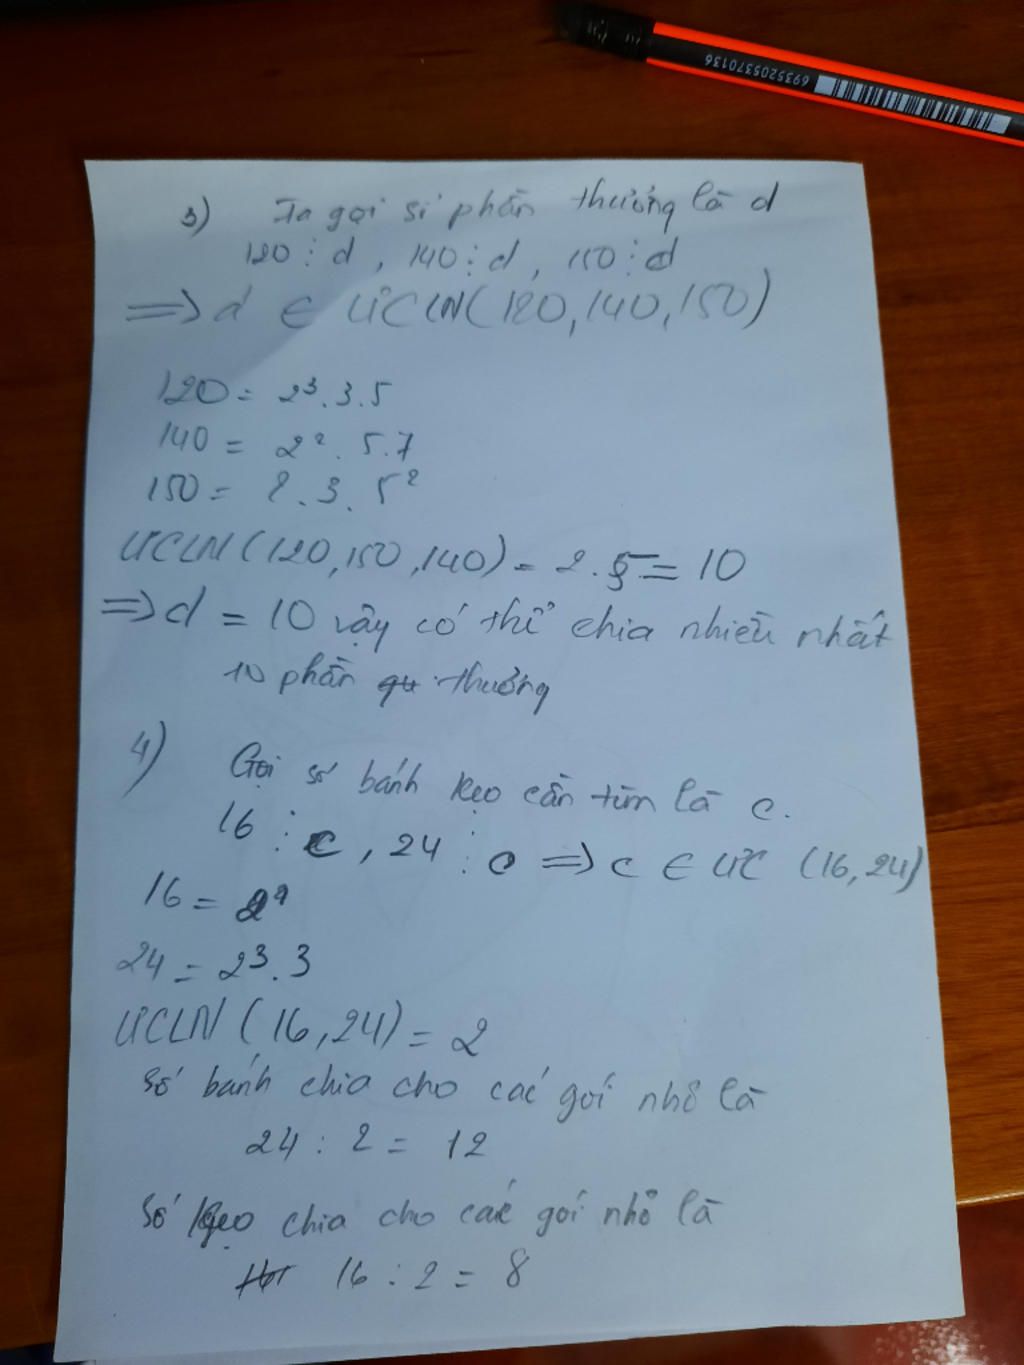 6935205370136
3) Ta gọi số phần thưởng là d
120 ⋮ d , 140 ⋮ d , 150 ⋮ d
=> d ∈ ƯCLN(120,140,150)
120 = 2³.3.5
140 = 2².5.7
150 = 2.3.5²
ƯCLN(120,150,140) = 2.5 = 10
=> d = 10 vậy có thể chia nhiều nhất
10 phần thưởng
4) Gọi số bánh kẹo cần tìm là c.
16 ⋮ c , 24 ⋮ c => c ∈ ƯC (16,24)
16 =
24 = 2³.3
ƯCLN (16,24) = 2
Số bánh chia cho các gói nhỏ là
24 : 2 = 12
Số kẹo chia cho các gói nhỏ là
16 : 2 = 8